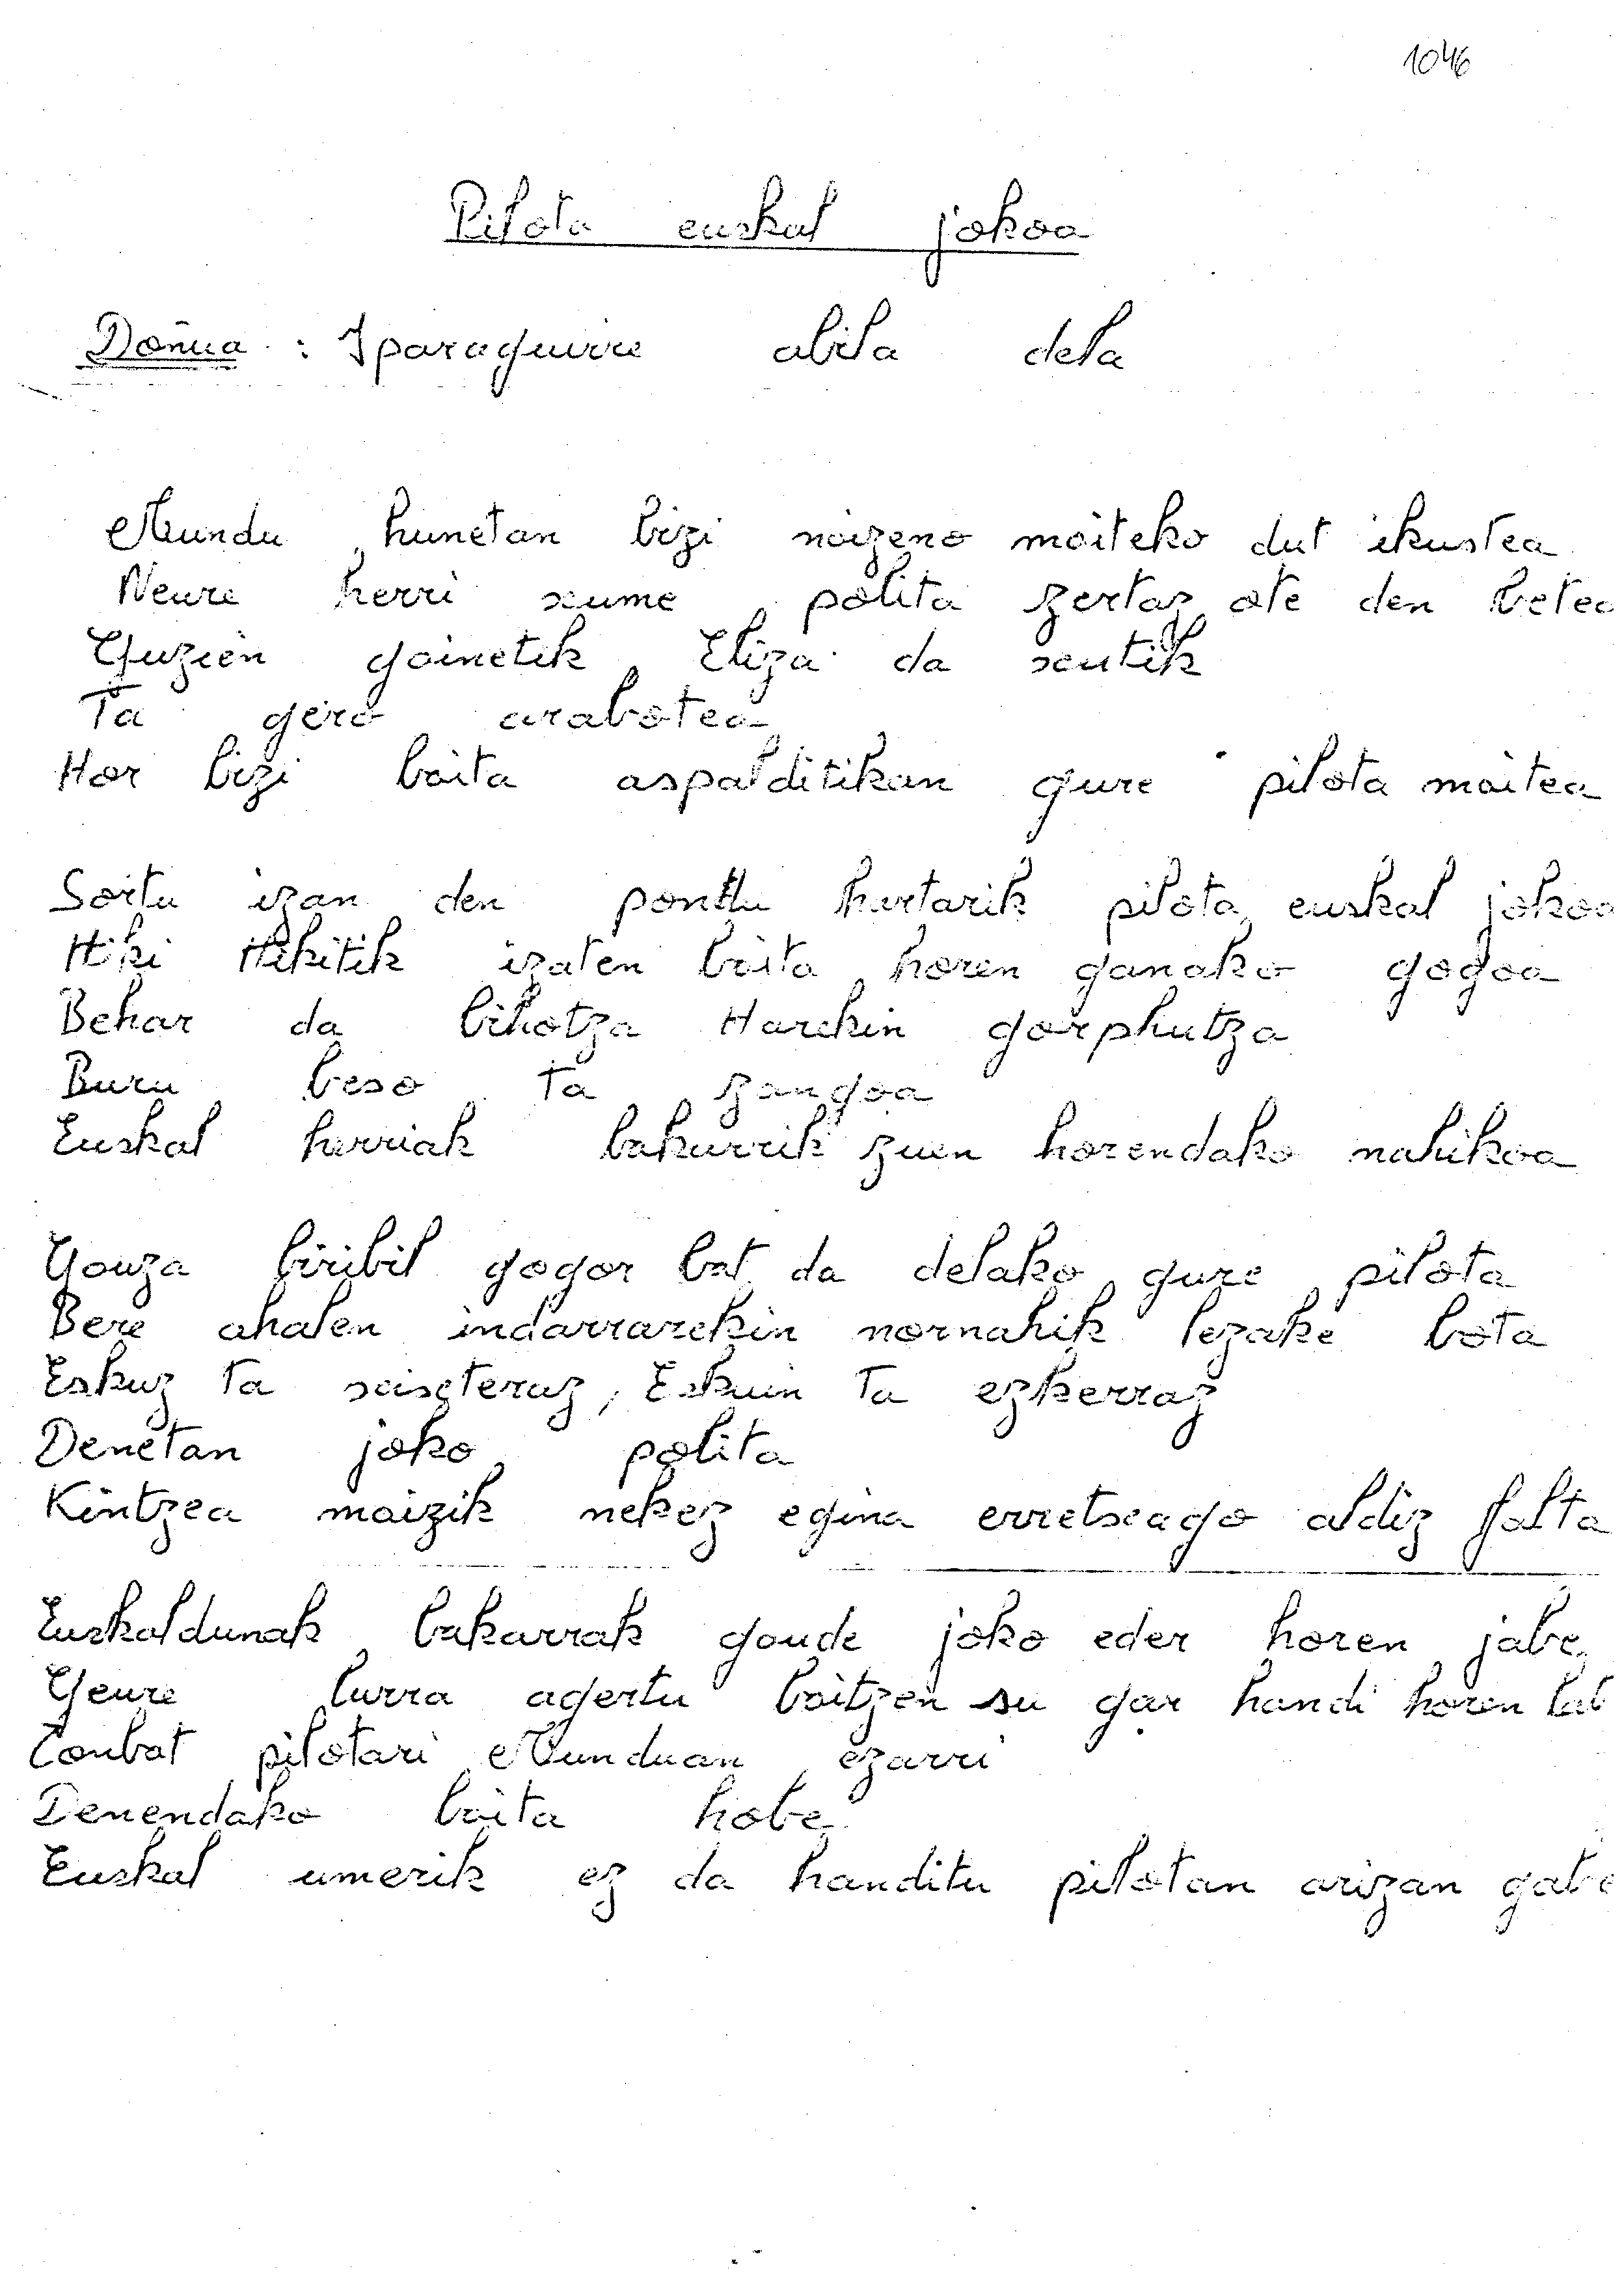 1046
Pilota euskal jokoa
Doñua : Iparaguirre abila dela
Mundu hunetan bizi naizeno maiteko dut ikustea
Neure herri xume polita zertaz ote den betea
Guzien gainetik Eliza da xutik
Ta gero arabotea
Hor bizi baita aspalditikan gure pilota maitea
Sortu izan den pontu hartarik pilota euskal jokoa
Ttiki ttikitik izaten baita horen ganako gogoa
Behar da bihotza Harekin gorphutza
Buru beso ta zangoa
Euskal herriak bakarrik zuen horendako nahikoa
Gauza biribil gogor bat da delako gure pilota
Bere ahalen indarrarekin nornahik lezake bota
Eskuz ta xixteraz, Eskuin ta ezkerraz
Denetan joko polita
Kintzea maizik nekez egina erretxago aldiz falta
Euskaldunak bakarrak goude joko eder horen jabe
Geure lurra agertu baitzen su gar handi horen
Zonbat pilotari Munduan ezarri
Denendako baita hobe
Euskal umerik ez da handitu pilotan arizan gabe